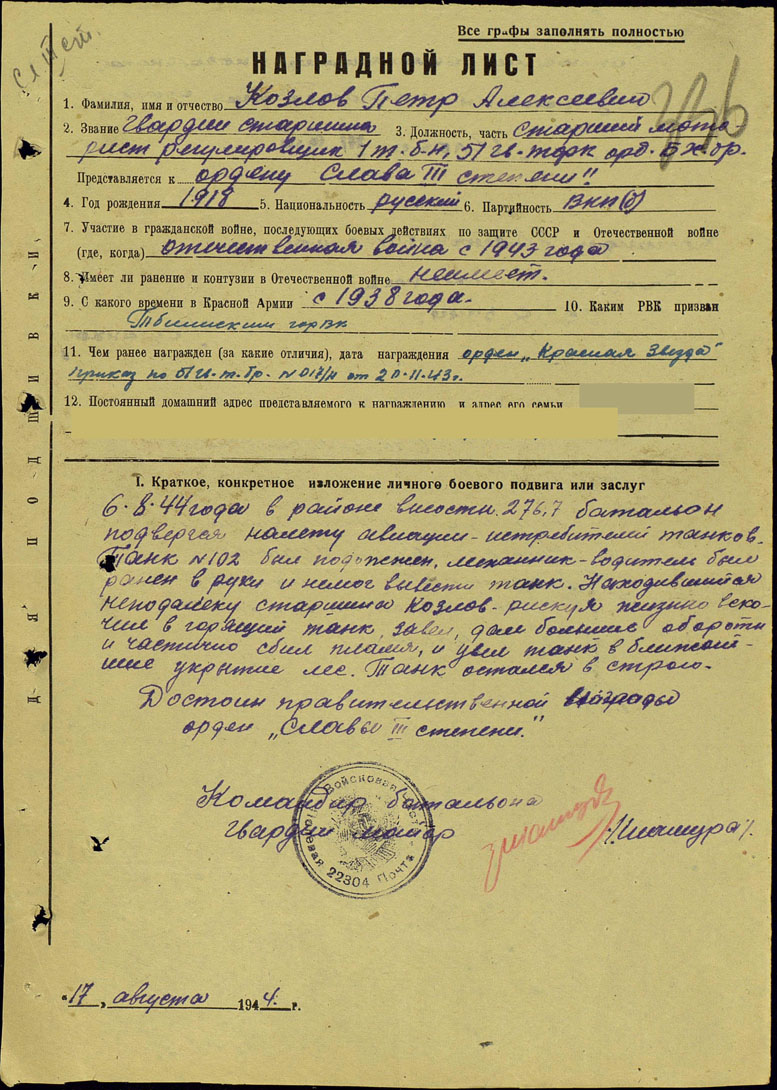 Все графы заполнять полностью
Сл III ст.
НАГРАДНОЙ ЛИСТ
1. Фамилия, имя и отчество Козлов Петр Алексеевич
2. Звание Гвардии старшина 3. Должность, часть Старший мото-
рист регулировщик 1 т.б-н, 51 гв. орд. Б.Х. бр.
Представляется к ордену Слава III степени!!
4. Год рождения 1918 5. Национальность русский 6. Партийность ВКП(б)
7. Участие в гражданской войне, последующих боевых действиях по защите СССР и Отечественной войне
(где, когда) отечественная война с 1943 года
8. Имеет ли ранение и контузии в Отечественной войне неимеет.
9. С какого времени в Красной Армии с 1938 года. 10. Каким РВК призван
горвк
11. Чем ранее награжден (за какие отличия), дата награждения орден „Красная Звезда"
приказ по 51 гв.т.бр. N 017/н от 20.11.43г.
12. Постоянный домашний адрес представляемого к награждению и адрес его семьи
I. Краткое, конкретное изложение личного боевого подвига или заслуг
6.8.44 года в районе высоты 276,7 батальон
подвергся налету авиации-истребителей танков.
Танк N 102 был подожжен, механник-водитель был
ранен в руки и немог вывести танк. Находившийся
неподалеку старшина Козлов-рискуя жизнью вско-
чил в горящий танк, завел, дал большие обороты
и частично сбил пламя, и увел танк в ближай-
шие укрытие лес. Танк остался в строю.
Достоин правительственной награды
орден „Славы III степени."
Командир батальона
Гвардии майор
Войсковая часть
Полевая Почта
22304
„17" августа 1944 г.
Для подшивки